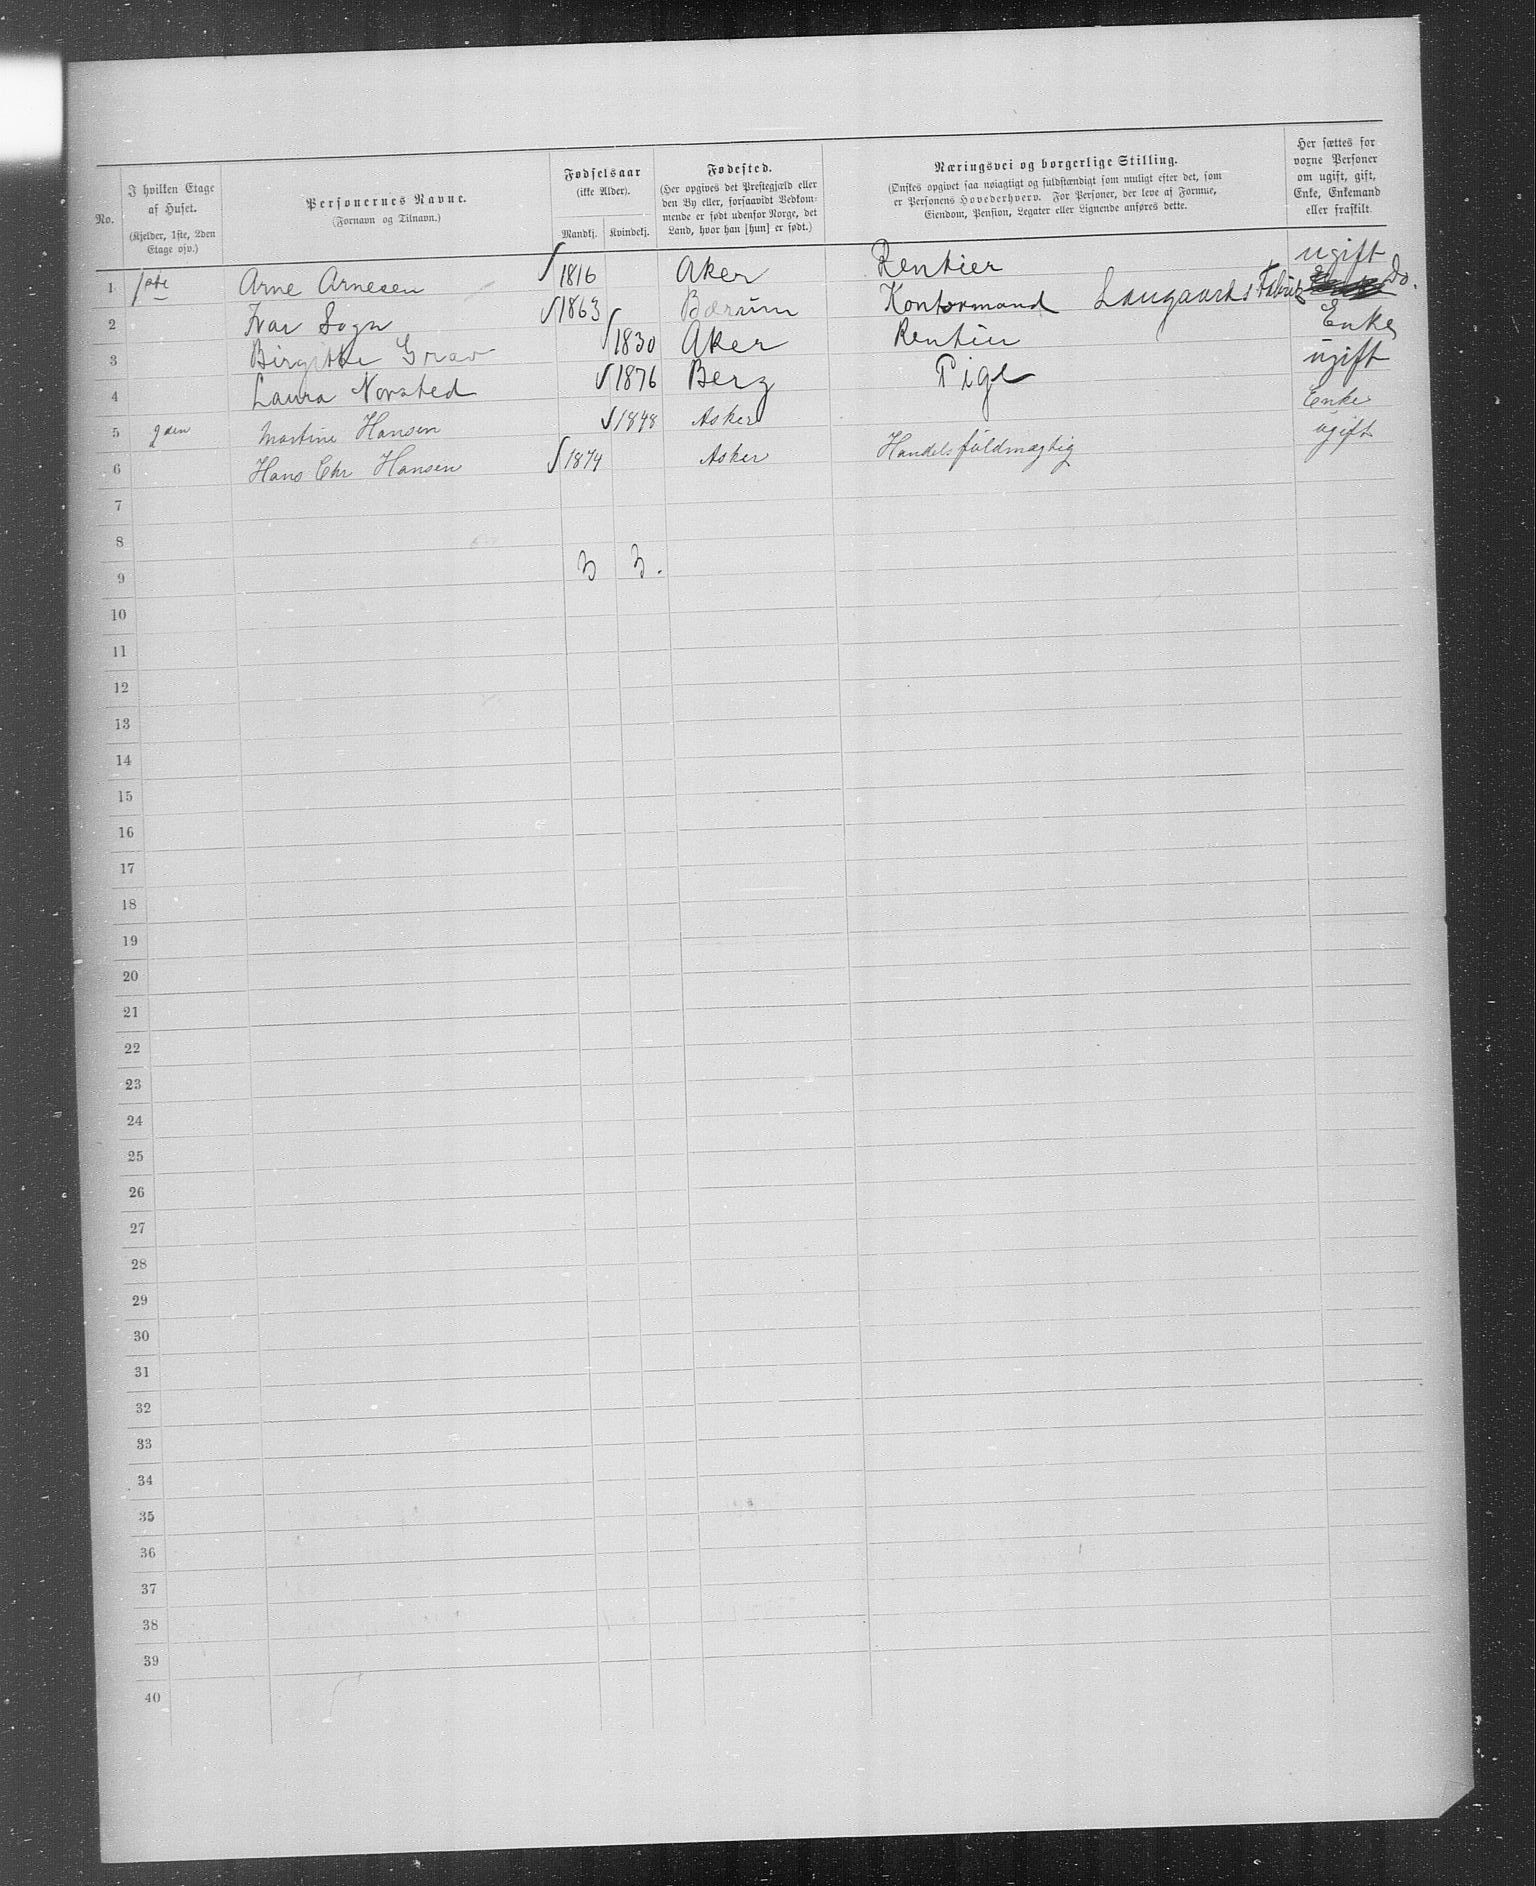 No.
I hvilken Etage af Huset.
(Kjelder, 1ste, 2den Etage osv.)
Personernes Navne.
(Fornavn og Tilnavn.)
Fødselsaar
(ikke Alder).
Mandkj. Kvindekj.
Fødested.
(Her opgives det Prestegjæld eller
den By eller, forsaavidt Vedkom-
mende er født udenfor Norge, det
Land, hvor han [hun] er født.)
Næringsvei og borgerlige Stilling.
(Ønskes opgivet saa nøiagtigt og fuldstændigt som muligt efter det, som
er Personens Hovederhverv. For Personer, der leve af Formue,
Eiendom, Pension, Legater eller Lignende anføres dette.
Her sættes for
voxne Personer
om ugift, gift,
Enke, Enkemand
eller fraskilt.
1 1ste Arne Arnesen 1816 Aker Rentier ugift
2 Ivar Sogn 1863 Bærum Kontormand Langaards Fabrik Do.
3 Birgitte Grav 1830 Aker Rentier Enke
4 Laura Norsted 1876 Berg Pige ugift
5 2den Martine Hansen 1848 Asker Enke
6 Hans Chr Hansen 1874 Asker Handelsfuldmægtig ugift
7
8
9 3 3.
10
11
12
13
14
15
16
17
18
19
20
21
22
23
24
25
26
27
28
29
30
31
32
33
34
35
36
37
38
39
40